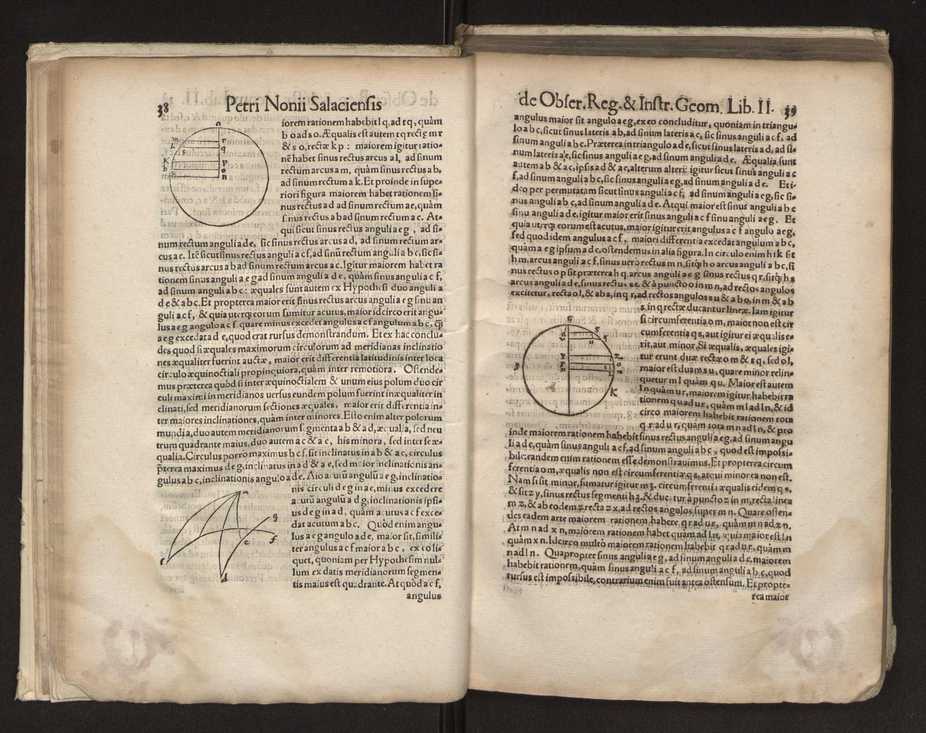 38
Petri Nonii Salaciensis
iorem rationem habebit l q, ad r q, quàm
b o ad s o. Æqualis est autem r q rectę m r
& s o, rectæ k p: maiorem igitur ratio-
nē habet sinus rectus arcus a l, ad sinum
rectum arcus a m, quàm sinus rectus a b,
ad sinum rectum a k. Et proinde in supe-
riori figura maiorem habet rationem si-
nus rectus a d ad sinum rectum a e, quàm
sinus rectus a b ad sinum rectum a c. At-
qui sicut sinus rectus anguli a e g, ad si-
num rectum anguli a d e, sic sinus rectus arcus a d, ad sinum rectum ar-
cus a e. Itē sicut sinus rectus anguli a c f, ad sinū rectum anguli a b c, sic si-
nus rectus arcus a b ad sinum rectum arcus a c. Igitur maiorem habet ra-
tionem sinus anguli a e g ad sinum anguli a d e, quàm sinus anguli a c f,
ad sinum anguli a b c: æquales sunt autem ex Hypothesi duo anguli a
d e & a b c. Et propterea maior erit sinus rectus arcus anguli a e g sinu an
guli a c f, & quia uterque eorum sumitur acutus, maior idcirco erit angu-
lus a e g angulo a c f: quare minus excedet angulus a c f angulum a b c, q̃
a e g excedat a d e, quod erat rursus demonstrandum. Et ex hac conclu-
des quod si æquales maximorum circulorum ad meridianas inclinatio
nes æqualiter fuerint auctæ, maior erit differentia latitudinis inter loca
circulo æquinoctiali propinquiora, quàm inter remotiora. Ostende-
mus præterea quòd si inter æquinoctialem & unum eius polum duo cir
culi maximi in meridianos versus eundem polum fuerint inæqualiter in
clinati, sed meridianorum sectiones æquales, maior erit differentia in-
ter maiores inclinationes, quàm inter minores. Esto enim alter polorum
mundi a, duo autem meridianorum segmenta a b & a d, æqualia, sed neu
trum quadrante maius, duo autem a c & a e, his minora, sed inter se æ-
qualia. Circulus porro maximus b c f, sit inclinatus in a b & a c, circulus
præterea maximus d e g, inclinatus in a d & a e, sed maior inclinationis an-
gulus a b c, inclinationis angulo a d e. Aio autē angulū a e g, inclinatio-
nis circuli d e g in a e, minus excedere
autē angulū a d g, inclinationis ipsi-
us d e g in a d, quàm a urus a c f exce-
dat acutum a b c. Quòd enim angu-
lus a c g angulo a d e, maior sit, simili-
ter angulus a c f maior a b c, ex eo li-
quet, quoniam per Hypothesim nul-
lum ex datis meridianorum segmen-
tis maius est quadrante. At quòd a c f,
angulus
de Obser. Reg. & Instr. Geom. Lib. II.
39
angulus maior sit angulo a e g, ex eo concluditur, quoniam in triangu-
lo a b c, sicut sinus lateris a b, ad sinum lateris a c, sic sinus anguli a c f, ad
sinum anguli a b c. Præterea in triangulo a d e, sicut sinus lateris a d, ad si-
num lateris a e, sic sinus anguli a e g, ad sinum anguli a d e. Æqualia sunt
autem a b & a c, ipsis a d & a e, alterum alteri: igitur sicut sinus anguli a c
f, ad sinum anguli a b c, sic sinus anguli a e g, ad sinum anguli a d e. Eti-
deo per permutatam sicut sinus anguli a c f, ad sinum anguli a e g, sic si-
nus anguli a b c, ad sinum anguli a d e. Atqui maior est sinus anguli a b c
sinu anguli a d e, igitur maior erit sinus anguli a c f sinu anguli a e g. Et
quia uterque eorum est acutus, maior igitur erit angulus a c f angulo a e g,
sed quod idem angulus a c f, maiori differentia excedat angulum a b c,
quàm a e g ipsum a d e, ostendemus in alia figura. In circulo enim h i k sit
h m, arcus anguli a c f, sinus vero rectus m n, sitque h o arcus anguli a b c, si
nus rectus o p sit præterea h q, arcus anguli a e g sinus rectus q r, sitque h s
arcus anguli a d e, sinus rectus s t, & à puncto o in m n, ad rectos angulos
excitetur, recta o l, & ab s, in q r, ad rectos angulos s u & a b o, in m & ab
s, in q rectæ ducantur lineæ. Iam igitur
si circumferentia o m, maior non est cir
cumferentia q s, aut igitur ei æqualis e-
rit, aut minor. Si æqualis, æquales igi-
tur erunt duæ rectæ o m & s q, sed o l,
maior est dua m s u, quare minor relin-
quetur m l quàm q u. Maior est autem
l n quàm u r, maiorem igitur habebit ra
tionem q u ad u r, quàm m l ad l n, & id
circo maiorem habebit rationem tota
q r ad u r, quàm tota m n ad l n, & pro
inde maiorem rationem habebit sinus rectus anguli a e g, ad sinum angu
li a d e, quàm sinus anguli a c f, ad sinum anguli a b c, quod est impossi-
bile: eandem enim rationem esse demonstrauimus. Et propterea circum
ferentia o m, æqualis non est circumferentiæ q s, atqui minor ea non est.
Nam si sit minor, sumatur igitur m ʒ, circumferentia æqualis eidem q s,
& sit z y, sinus rectus segmenti h ʒ, & ducatur à puncto z in m, recta linea
m z, & ab eodem z recta z x, ad rectos angulos, super m n. Quare osten-
des eadem arte maiorem rationem habere q r ad u r, quàm m n ad x n.
At m n ad x n, maiorem rationem habet quàm ad l n, quia maior est l n
quàm x n. Idcirco multò maiorem rationem habebit q r ad u r, quàm m
n ad l n. Quapropter sinus anguli a e g, ad sinum anguli a d e, maiorem
habebit rationem, quàm sinus anguli a c f, ad sinum anguli a b c, quod
rursus est impossibile, contrarium enim fuit antea ostensum. Et propte-
rea maior